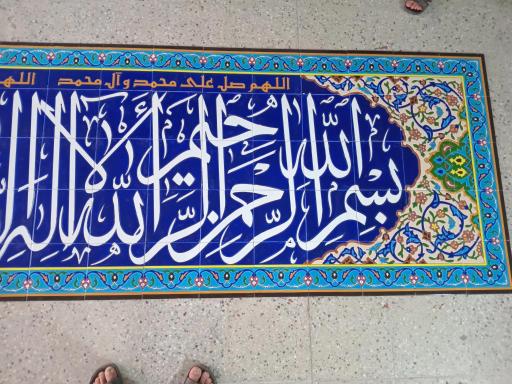 اللهم صل علی محمد و آل محمد اللهم
بسم الله الرحمن الرحيم الله لا إله